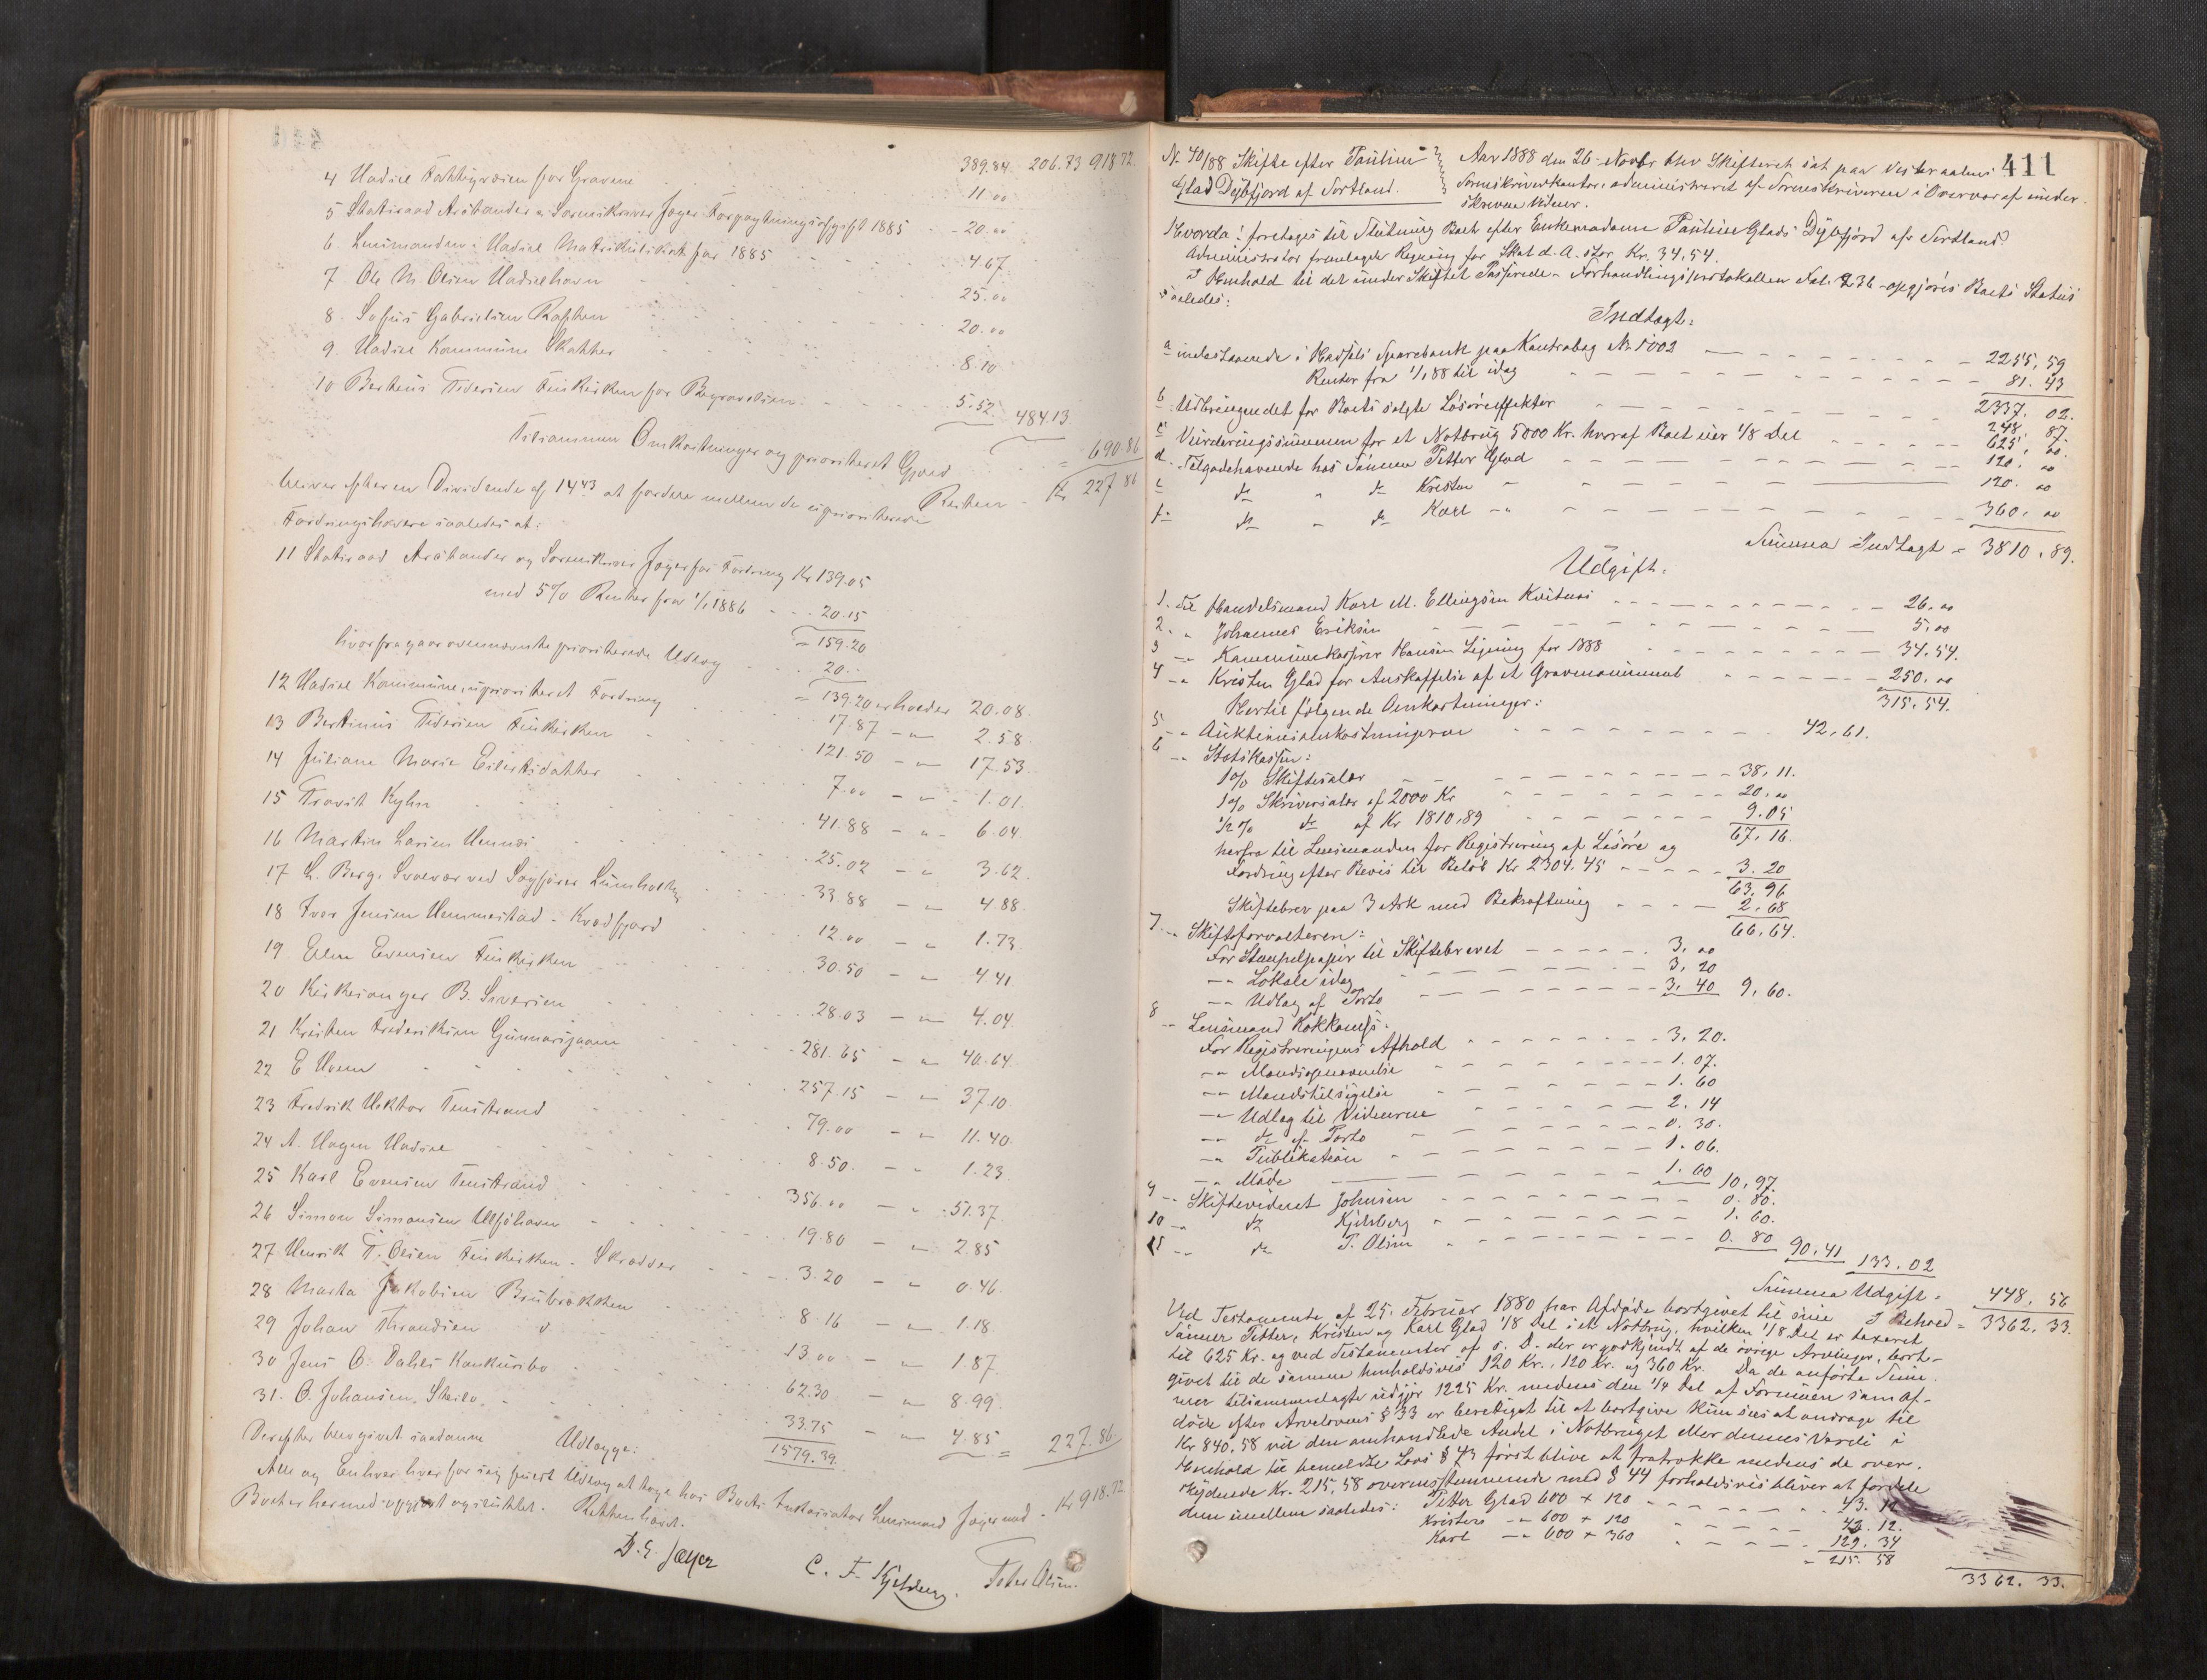 389.84 206.73 918.72
4 Hadsel Fattigvæsen for Gravene 11.00
5 Statsraad Aarstander & Sorenskriver Jæger Forpagtningsafgift 1885 20.00
6. Lensmanden i Hadsel Matrikulskat for 1885 4.67
7 Ole M. Olsen Hadselhavn 25.00
8. Sofus Gabrielsen 20.00
9. Hadsel Kommune Skatter 8.10
10 Bertheus Pedersen for Begravelsen 5.52 484.13
Tilsammen Omkostninger og prioriteret Gjæld = 690.86
Resten Kr 227.86
bliver efter en Dividende af 14.43 at fordele mellem de uprioriterede
Fordringshavere saaledes at:
11 Statsraad og Sorenskriver Jæger for Fordring Kr 139.05
med 5% Renter fra 1/1 1886 20.15
= 159.20
hvorfra gaar ovennævnte prioriterede Udlæg 20.-
= 139.20 erholder 20.08.
12 Hadsel Kommune, uprioriteret Fordring 17.87 - " - 2.58.
13 Bertinus Pedersen 121.50 - " - 17.53
14 Juliane Marie Eilertsdatter 7.00 - " - 1.01.
15 Kyhn 41.88 - " - 6.04.
16 Martin Larsen 25.02 - " 3.62.
17 L. Berg, Svolvær ved Sagfører 33.88 - " - 4.88.
18 Iver Jensen Hemmestad - Kvædfjord 12.00 - " 1.73.
19 Evensen 30.50 - " - 4.41
20 Kirkesanger B. Siversen 28.03 - " - 4.04
21 Kristen Frederiksen 281.65 - " - 40.64
22 E 257.15 - " - 37.10
23 Fredrik 79.00 - " - 11.40.
24 A. Hagen Hadsel 8.50. - " 1.23
25 Karl Evensen 356.00 - " 51.37.
26 Simon Simonsen 19.80 - " - 2.85
27 Henrik P. Olsen - Skrædder 3.20 - " 0.46.
28 Marta Jakobsen 8.16 - " - 1.18.
29 Johan 13.00 - " - 1.87.
30 Jens O. Dahls Konkursbo 62.30 - " 8.99.
31. O. Johansen, 33.75 - " - 4.85 = 227.86
1579.39.
Derefter blev givet saadanne Udlægge:
Alle og Enhver hver for sig Udlæg at tage hos Boets Inkassator Lensmand Jæger med Kr 918.72
Boet er hermed opgjort og sluttet. Retten hævet.
D. E. Jæger C. F. Kjelsberg. Peter Olsen.
411
N. 40/88 Skifte efter Pauline
Glad Dybfjord af Sortland.
Aar 1888 den 26 Novbr blev Skifteret sat paa Vesteraalens
Sorenskriverkontor, administreret af Sorenskriveren i Overvær af under-
skrevne Vidner.
Hvorda: foretoges til Slutning Boet efter Enkemadame Pauline Glads Dybfjord af Sortland.
Administrator fremlagde Regning for Skat d. A. stor Kr. 34,54.
I Henhold til det under Skiftet Passerede - Forhandlingsprotokollen Fol. 236 - opgjøres Boets Status
saaledes:
Indtægt:
a indestaaende i Hadsels Sparebank paa Kontrabog N. 1002 2255,59
Renter fra 1/1 88 til idag 81.43
2337. 02.
b. Udbringendet for Boets solgte Løsøreffekter 248. 87.
c Vurderingssummen for et Notbrug 5000 Kr. hvoraf Boet eier 1/8 Del 625. 00.
d. Tilgodehavende hos Sønnen Petter Glad 120. 00
e do " do Kristen " 120. 00
f. do " do Karl - " 360. 00
Summa Indtægt = 3810.89.
Udgift.
1. Til Handelsmand Karl M. Ellingsen Kortnæs 26.00
2. " Johannes Eriksen 5.00
3 - " Kommunekasserer Hansen Ligning for 1888 34.54.
4 - " Kristen Glad for Anskaffelse af et Gravmonument 250.00
315.54.
Hertil følgende Omkostninger:
5 - " Auktionsomkostningerne 42,61.
6 - " Statskassen:
1% Skiftesalær 38,11.
1% Skriversalær af 2000 Kr 20.00
1/2% do af Kr 1810,89 9.05
67.16.
herfra til Lensmanden for Registrering af Løsøre og
Fordring efter Bevis til Beløb Kr 2304.45 3.20
63.96
Skiftebrev paa 3 Ark med Bekræftning 2.68
66,64.
7 - " Skifteforvalteren:
For Stempelpapir til Skiftebrevet 3.00
- " Lokale idag 3,20
- " Udlæg af Porto 3.40 9,60.
8 - " Lensmand Kokkons:
For Registreringens Afhold 3,20.
- " Mandsopnævnelse 1.07.
- " Mændstilsigelse 1.60
- " Udlæg til Vidnerne 2.14
- " do af Porto 0.30.
- " Publikation 1.06.
- " Møde 1.60 10,97.
9 - " Skiftevidnet Johnsen 0.80.
10 - " do Kjelsberg 1.60.
11 - " do P. Olsen 0.80 90,41 133.02
Summa Udgift = 448,56
I Behold = 3362,33.
Ved Testamente af 25. Februar 1880 har Afdøde bortgivet til sine
Sønner Petter, Kristen og Karl Glad 1/8 Del i et Notbrug, hvilken 1/8 Del er taxeret
til 625 Kr. og ved Testamenter af s. D. der er godkjendt af de øvrige Arvinger, bort-
givet til de samme henholdsvis 120 Kr., 120 Kr. og 360 Kr. Da de anførte Sum-
mer tilsammenlagte udgjør 1225 Kr. medens den 1/4 Del af Formuen som Af-
døde efter Arvelovens § 33 er berettiget til at bortgive kun sees at andrage til
Kr 840,58 vil den omhandlede Andel i Notbruget eller dennes Værdi i
Henhold til bemeldte Lovs § 43 først blive at fratrække medens de over-
skydende Kr. 215,58 overensstemmende med § 44 forholdsvis bliver at fordele
dem imellem saaledes: Petter Glad 600 + 120 43.12
Kristen - " 600 + 120 43.12.
Karl - " 600 + 360 129.34
= 215.58
3362. 33.